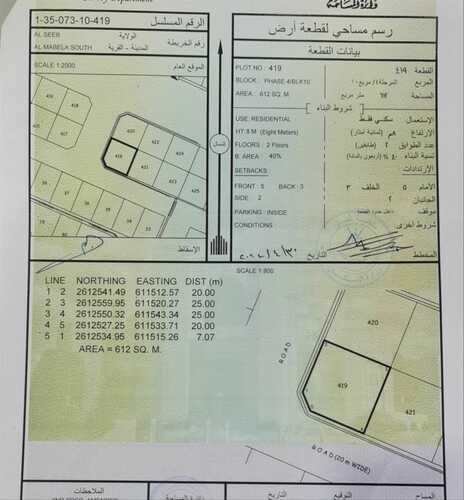 رسم مساحي لقطعة أرض
الرقم المسلسل
1-35-073-10-419
بيانات القطعة
AL SEEB
الولاية
AL MABELA SOUTH
المدينة - القرية
رقم الخريطة
SCALE 1:2000
الموقع العام
PLOT NO: 419
القطعة ٤١٩
BLOCK : PHASE 4/BLK10
المربع
AREA : 612 SQ. M
المساحة ٦١٢ متر مربع
شروط البناء
USE: RESIDENTIAL
الاستعمال سكني فقط
HT: 8 M (Eight Meters)
الارتفاع
FLOORS : 2 Floors
عدد الطوابق ٢ (طابقين)
B. AREA 40%
نسبة البناء ٤٠٪ (أربعون بالمائة)
SETBACKS:
الارتدادات
FRONT : 5 BACK : 3
الأمام ٥ الخلف ٣
SIDE : 2
الجانبان ٢
PARKING : INSIDE
موقف داخل حدود القطعة
CONDITIONS
شروط أخرى
المخطط
التاريخ
الشمال
420
419
421
الإسقاط
SCALE 1:800
LINE NORTHING EASTING DIST (m)
1 2 2612541.49 611512.57 20.00
2 3 2612559.95 611520.27 25.00
3 4 2612550.32 611543.34 25.00
4 5 2612527.25 611533.71 20.00
5 1 2612534.95 611515.26 7.07
AREA = 612 SQ. M.
ROAD
420
419
421
ROAD (20m WIDE)
الملاحظات
التاريخ
التوقيع
المساح